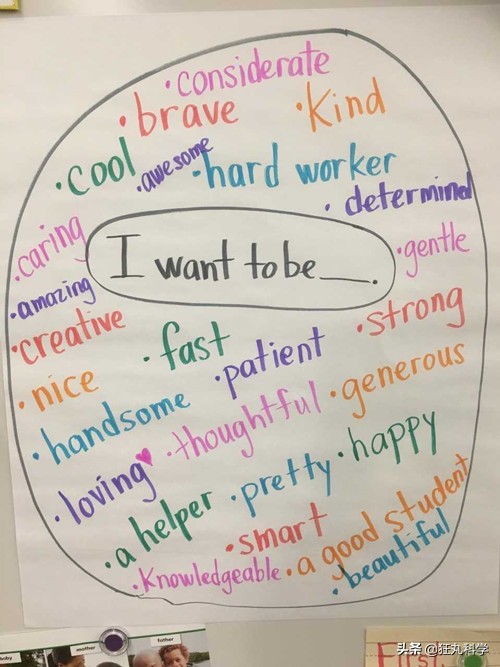 • considerate
• brave
• Kind
• cool
• awesome
• hard worker
• determined
• caring
I want to be ___.
• gentle
• amazing
• creative
• fast
• strong
• nice
• patient
• generous
• handsome
• thoughtful
• happy
• loving
• pretty
• a helper
• smart
• a good student
• Knowledgeable
• beautiful
baby
mother
father
First
头条 @狂丸科学